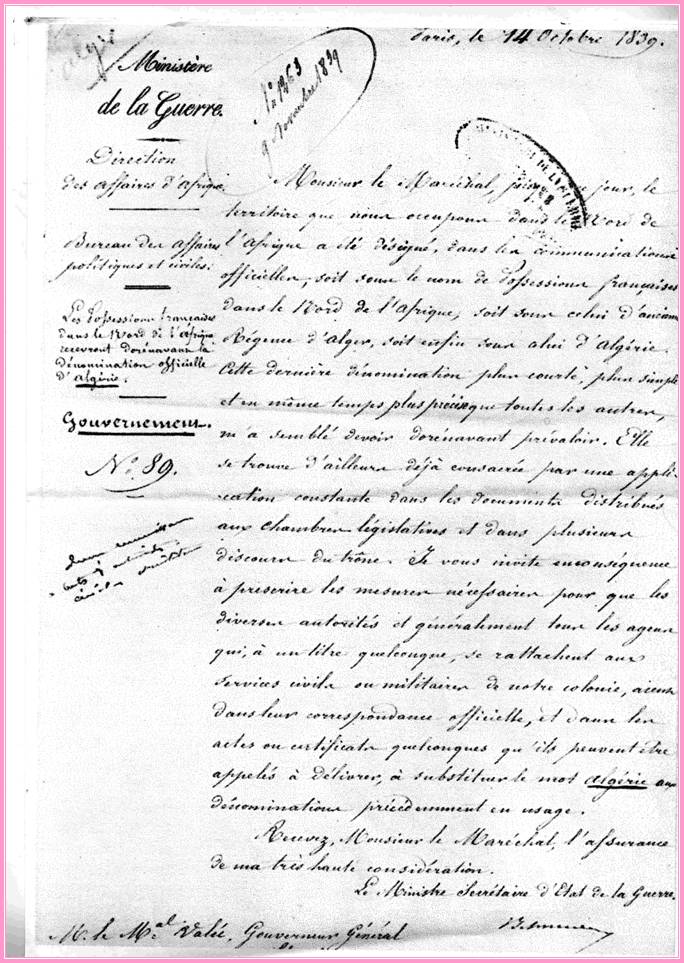 Paris, le 14 Octobre 1839.
Alger
Ministère
de la Guerre.
Nº 1363
9 Novembre 1839
Direction
des affaires d'Afrique.
Bureau des affaires
politiques et civiles.
Les Possessions françaises
dans le Nord de l'Afrique
recevront dorénavant la
dénomination officielle
d'Algérie.
Gouvernement.
Nº 89.
Monsieur le Maréchal, jour, le
territoire que nous occupons dans le Nord de
l'Afrique a été désigné, dans les communications
officielles, soit sous le nom de Possessions françaises
dans le Nord de l'Afrique, soit sous celui d'ancienne
Régence d'Alger, soit enfin sous celui d'Algérie.
Cette dernière dénomination plus courte, plus simple
et en même temps plus précise que toutes les autres,
m'a semblé devoir dorénavant prévaloir. Elle
se trouve d'ailleurs déjà consacrée par une appli-
cation constante dans les documents distribués
aux chambres législatives et dans plusieurs
discours du trône. Je vous invite en conséquence
à prescrire les mesures nécessaires pour que les
diverses autorités et généralement tous les agens
qui, à un titre quelconque, se rattachent aux
services civils ou militaires de notre colonie, aient
dans leur correspondance officielle, et dans les
actes ou certificats quelconques qu'ils peuvent être
appelés à délivrer, à substituer le mot Algérie aux
dénominations précédemment en usage.
Recevez, Monsieur le Maréchal, l'assurance
de ma très haute considération.
Le Ministre Secrétaire d'Etat de la Guerre.
M. le Mal Valée, Gouverneur Général